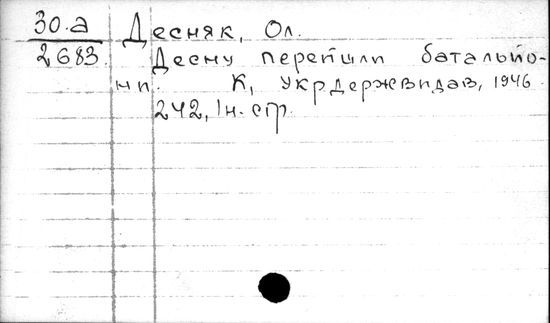 30.а Десняк, Ол.
2683. Десну перейшли батальйо-
ни. К, Укрдержвидав, 1946.
242, 1н. стр.